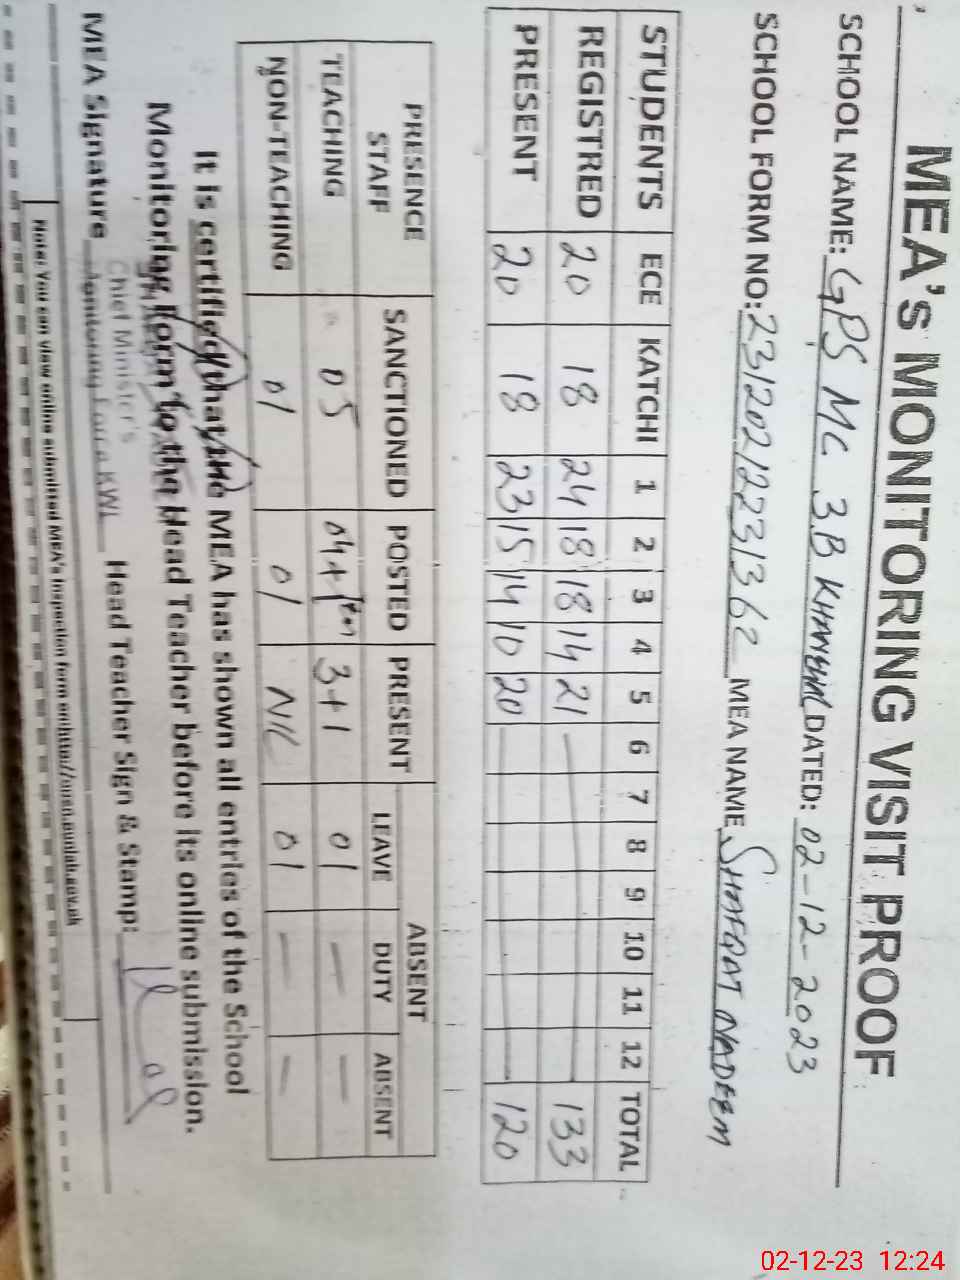 MEA's MONITORING VISIT PROOF
SCHOOL NAME: GPS MC 3.B KHANEWAL DATED: 02-12-2023
SCHOOL FORM NO: 23120212231362 MEA NAME SHAFQAT NADEEM
STUDENTS ECE KATCHI 1 2 3 4 5 6 7 8 9 10 11 12 TOTAL
REGISTRED 20 18 24 18 18 14 21 133
PRESENT 20 18 23 15 14 10 20 120
PRESENCE STAFF SANCTIONED POSTED PRESENT ABSENT
LEAVE DUTY ABSENT
TEACHING 05 04+1 3+1 01 — —
NON-TEACHING 01 01 NIL 01 — —
It is certified that the MEA has shown all entries of the School
Monitoring Form to the Head Teacher before its online submission.
MEA Signature Head Teacher Sign & Stamp:
Chief Minister's
Monitoring Force KWL
Note: You can view online submitted MEA's inspection form on
02-12-23 12:24